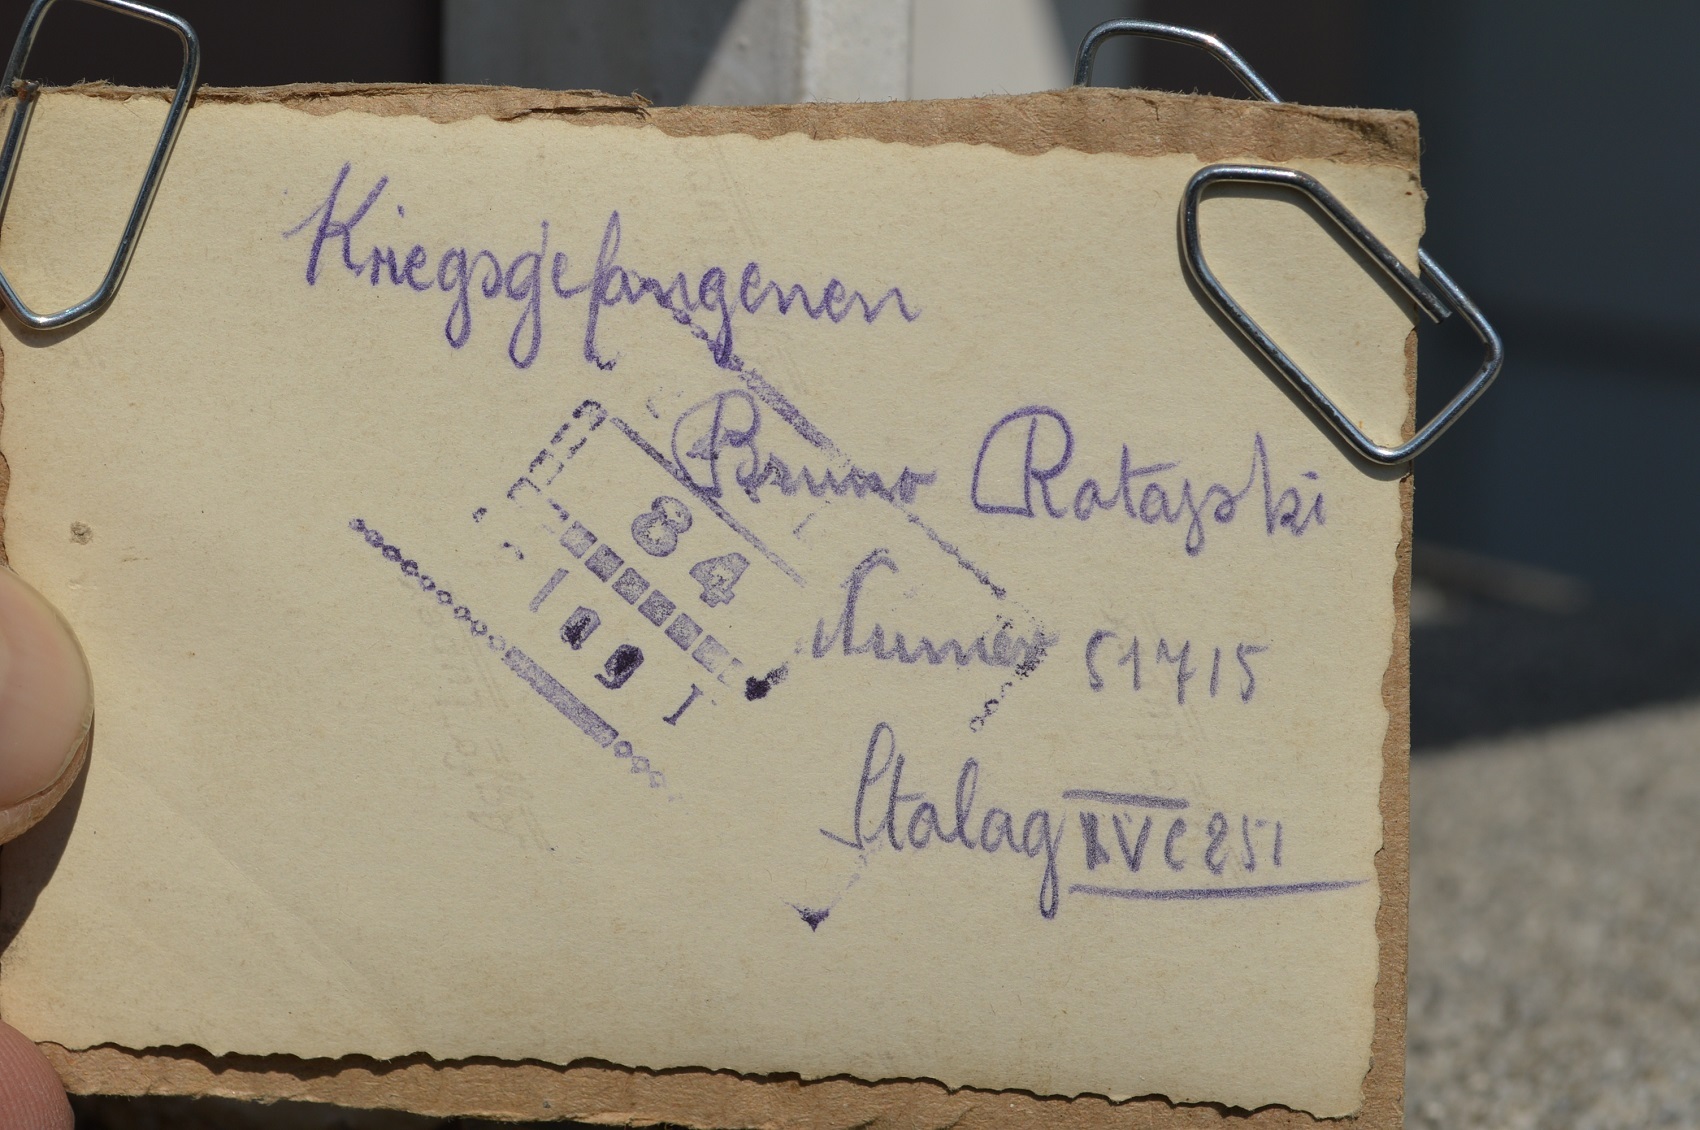 Kriegsgefangenen
Bruno Ratajski
84
Numer 51715
Stalag XVC 251